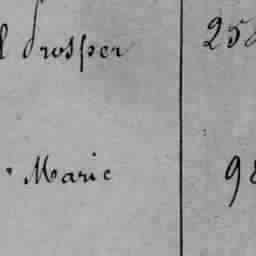 Prosper 25
Marie 9